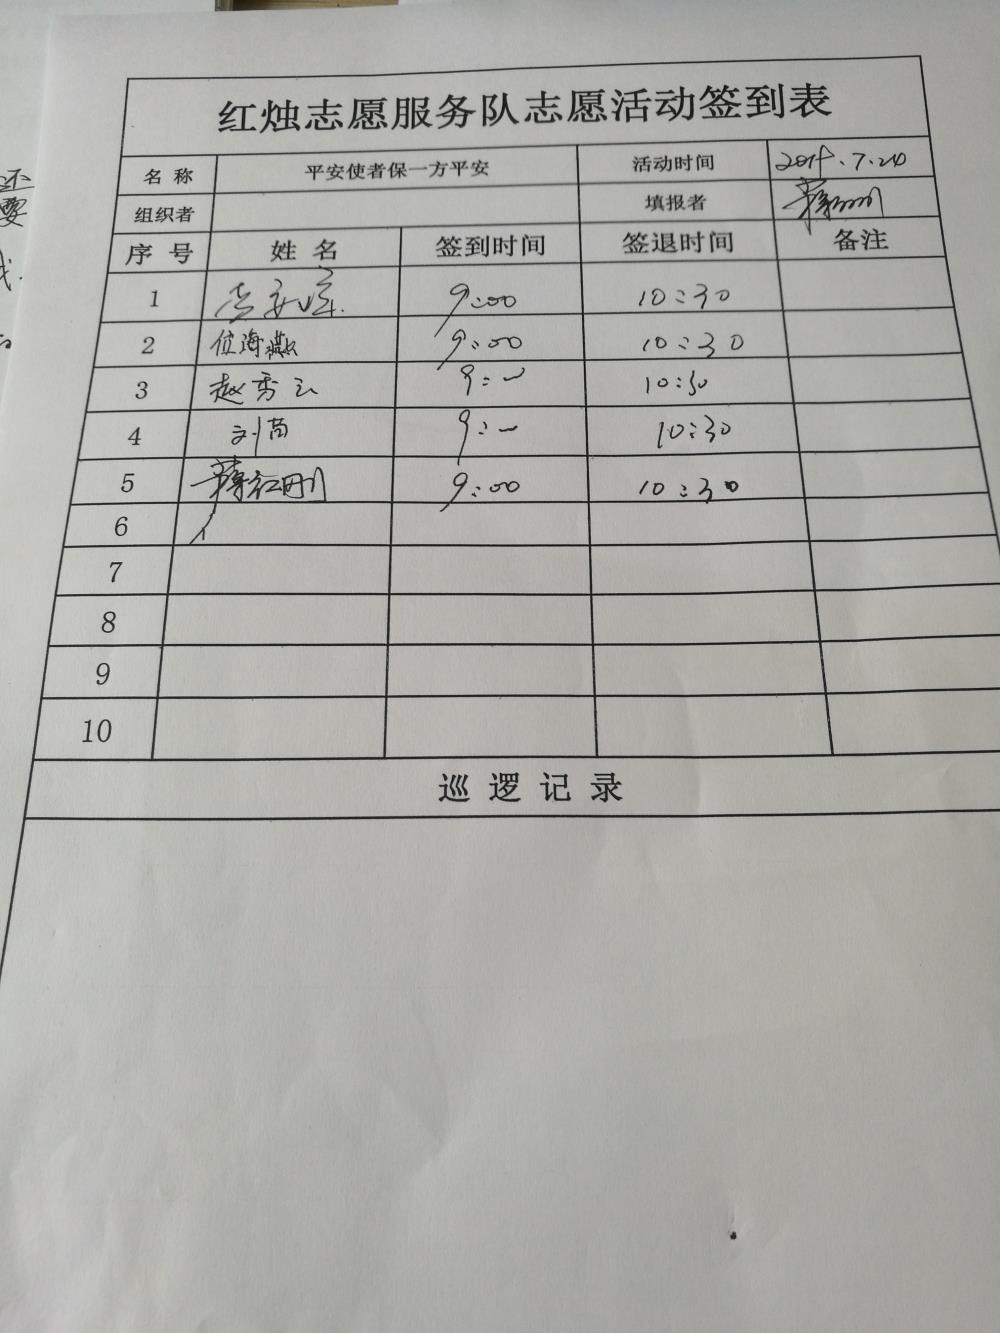 红烛志愿服务队志愿活动签到表
名称 平安使者保一方平安 活动时间 7.20
组织者 填报者
序号 姓名 签到时间 签退时间 备注
1 9:00 10:30
2 位海燕 9:00 10:30
3 赵秀云 9: 10:30
4 刘苗 9: 10:30
5 红刚 9:00 10:30
6
7
8
9
10
巡逻记录
还
要